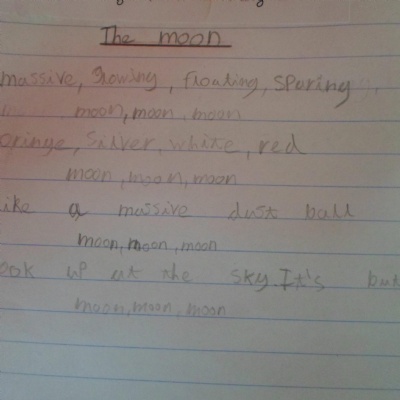 The moon
massive, Growing, floating, sparing,
moon, moon, moon
oringe, silver, white, red
moon, moon, moon
ike a massive dust ball
moon, moon, moon
ook up at the sky. It's but
moon, moon, moon